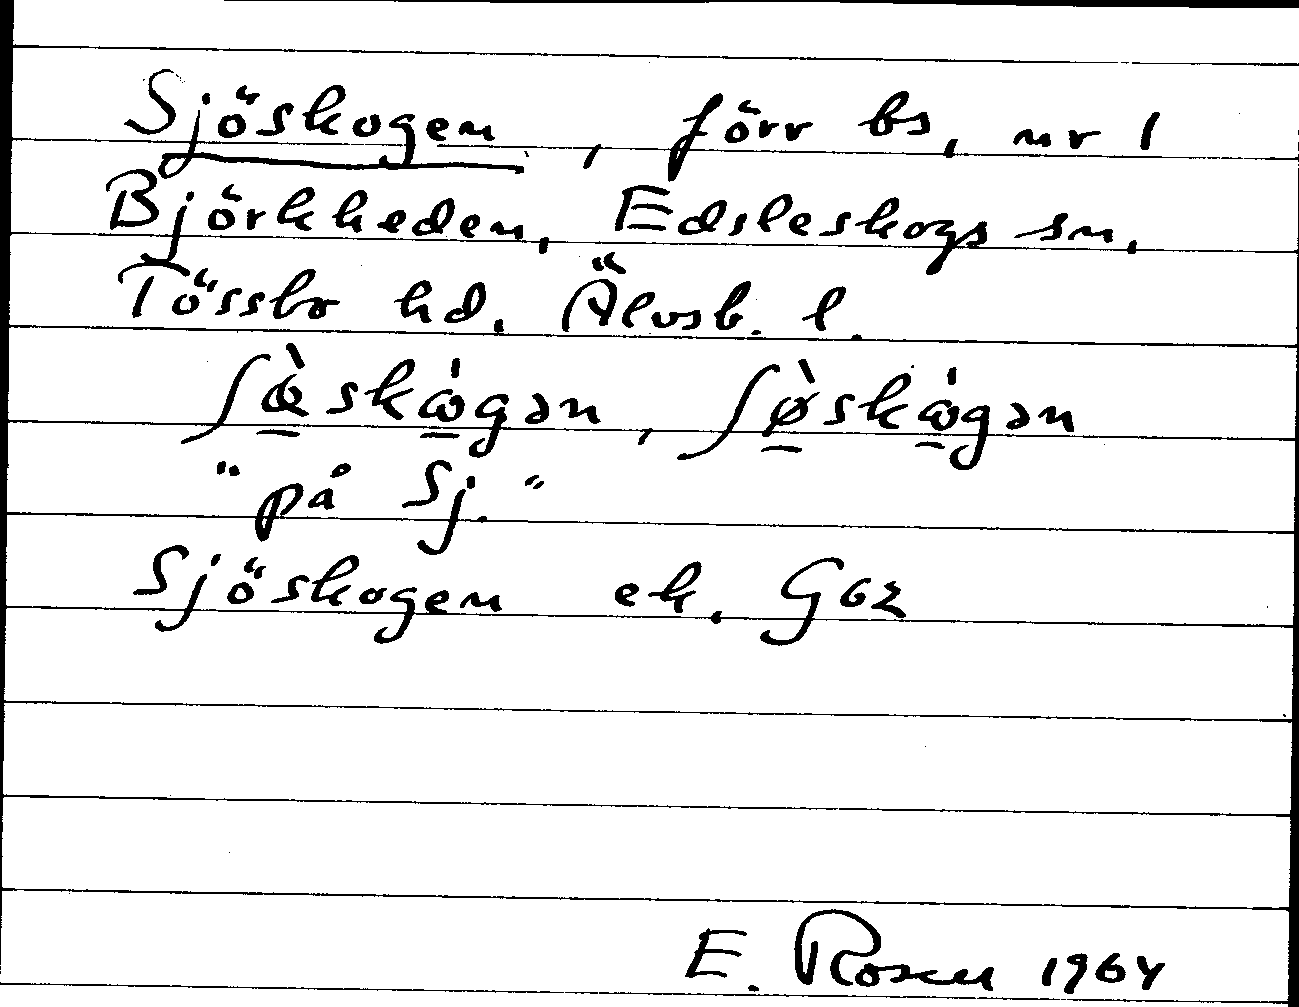 Sjöskogen, förr bs, nr 1
Björkheden, Edsleskogs sn,
Tössbo hd. Älvsb. l.
"på Sj."
Sjöskogen ek. G62
E. Rosen 1964